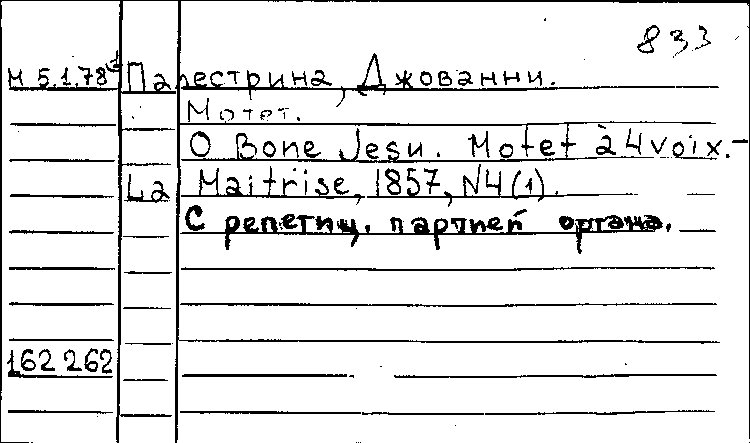 833
М 5.1.78 Палестрина, Джованни.
Мотет.
O Bone Jesu. Motet à 4 voix.-
La Maitrise, 1857, N4(1).
С репетиц. партией органа.
162 262